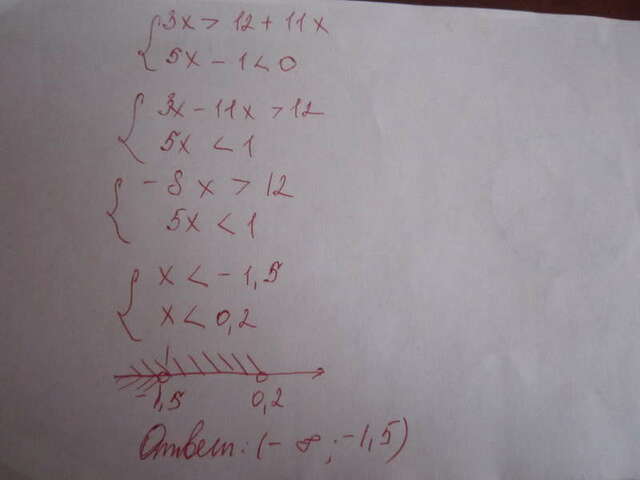 { 3x > 12 + 11x
5x - 1 < 0
{ 3x - 11x > 12
5x < 1
{ -8x > 12
5x < 1
{ x < -1,5
x < 0,2
-1,5 0,2
Ответ: (-∞; -1,5)